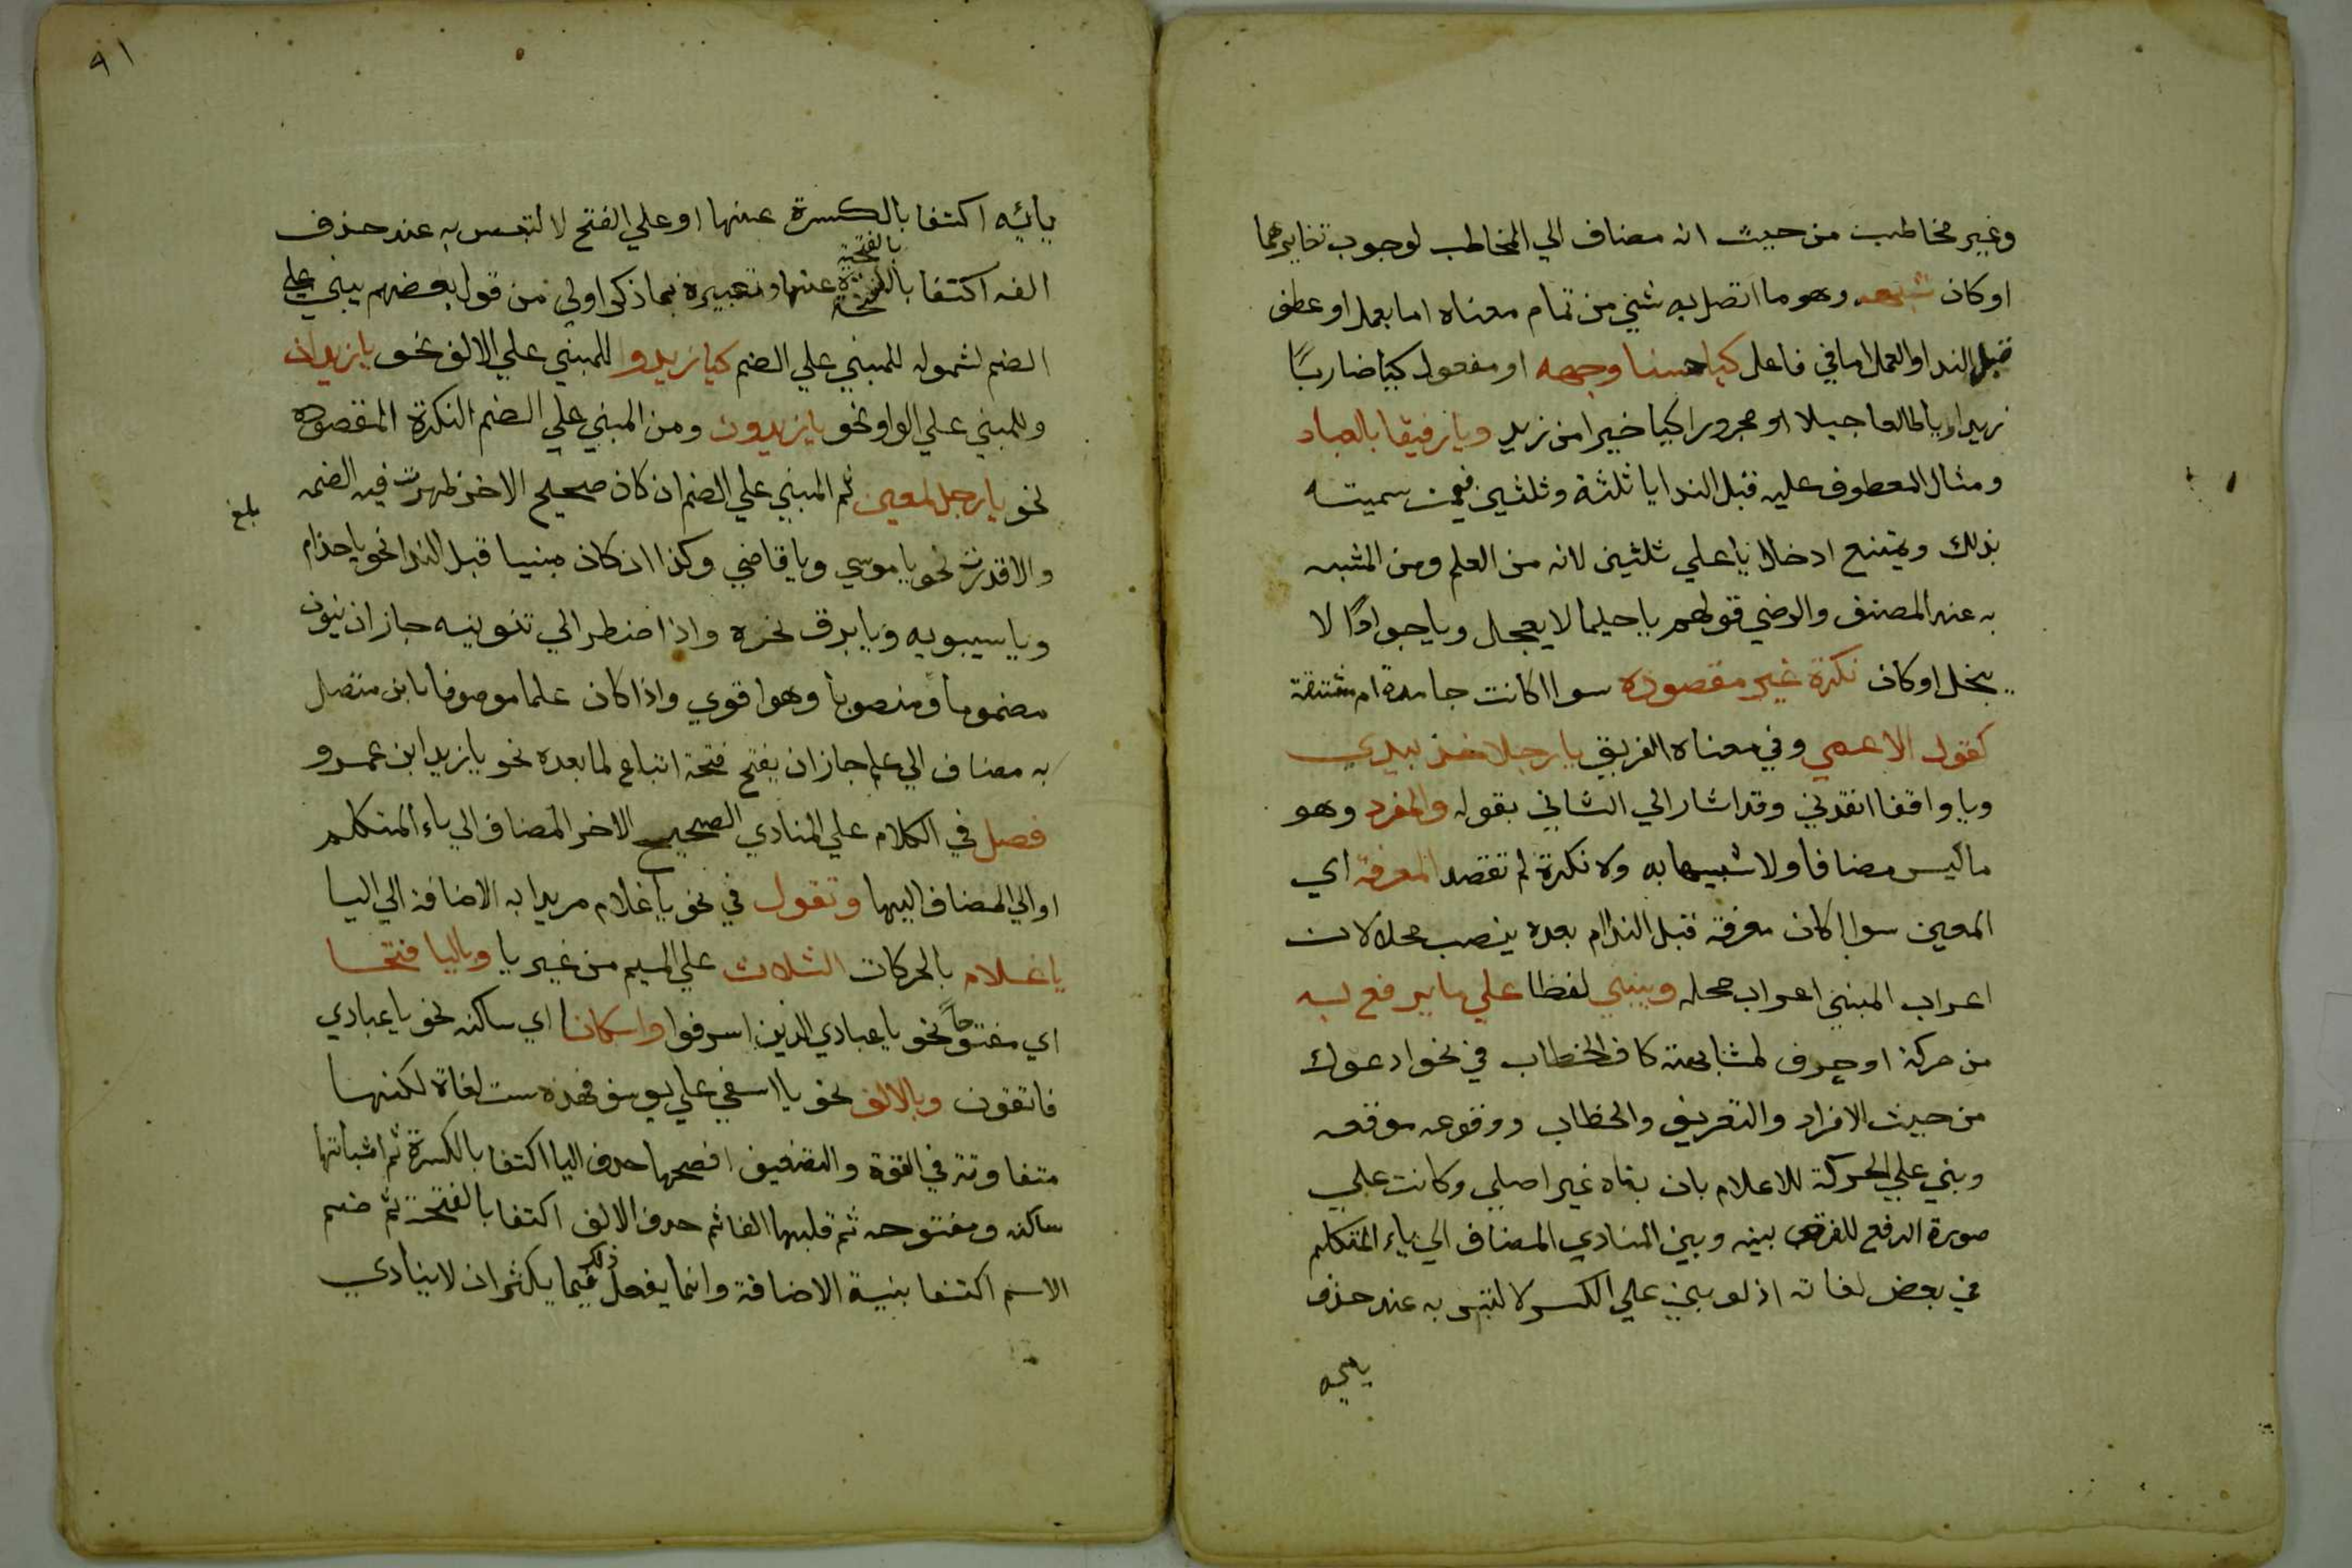 وغير مخاطب من حيث انه مضاف الي المخاطب لوجوب تغايرهما
او كان شبهه وهو ما اتصل به شيئ من تمام معناه اما بعمل او عطف
قبل الندا والعمل اما في فاعل كيا حسنا وجهه او مفعول كيا ضاربًا
زيدا ويا طالعا جبلا او مجرور كيا خيرا من زيد ويا رفيقا بالعباد
ومثال المعطوف عليه قبل الندا يا ثلثة وثلثين فيمن سميته
بذلك ويمتنع ادخال يا علي ثلثين لانه من العلم ومن المشبه
به عند المصنف والرضي قولهم يا حليما لا يعجل ويا جوادًا لا
يبخل او كان نكرة غير مقصوده سوا اكانت جامدة ام مشتقة
كقول الاعمي وفي معناه الغريق يا رجلا خذ بيدي
ويا واقفا انقذني وقد اشار الي الثاني بقوله والمفرد وهو
ما ليس مضافا ولا شبيها به ولا نكرة لم تقصد المعرفة اي
المعين سوا اكان معرفة قبل الندا ام بعده ينصب محلا لان
اعراب المبني اعراب محله ويبني لفظا علي ما يرفع به
من حركة او حرف لمشابهته كاف الخطاب في نحو ادعوك
من حيث الافراد والتعريف والخطاب ووقوعه موقعه
وبني علي الحركة للاعلام بان بناه غير اصلي وكانت علي
صورة الرفع للفرق بينه وبين المنادي المضاف الي ياء المتكلم
في بعض لغاته اذ لو بني علي الكسر لالتبس به عند حذف
يائيه
٩١
يائيه اكتفا بالكسرة عنها او علي الفتح لالتبس به عند حذف
الفه اكتفا بالفتحة عنها وتعبيره بما ذكر اولي من قول بعضهم يبني علي
الضم لشموله للمبني علي الضم كيا زيد وللمبني علي الالف نحو يا زيدان
وللمبني علي الواو نحو يا زيدون ومن المبني علي الضم النكرة المقصوده
نحو يا رجل لمعين ثم المبني علي الضم ان كان صحيح الاخر ظهرت فيه الضمه
بلغ
والا قدرت نحو يا موسي ويا قاضي وكذا ان كان مبنيا قبل الندا نحو يا حذام
ويا سيبويه ويا برق نحره واذا اضطر الي تنوينه جاز ان ينون
مضموما ومنصوبا وهو اقوي واذا كان علما موصوفا بابن متصل
به مضاف الي علم جاز ان يفتح فتحة اتباع لما بعده نحو يا زيد ابن عمرو
فصل في الكلام علي المنادي الصحيح الاخر المضاف الي ياء المتكلم
او الي المضاف اليها وتقول في نحو يا غلام مريدا به الاضافة الي اليا
يا غلام بالحركات الثلاث علي الميم من غير يا وباليا فتحا
اي مفتوحاً نحو يا عبادي الذين اسرفوا واسكانا اي ساكنه نحو يا عبادي
فاتقون وبالالف نحو يا اسفي علي يوسف فهذه ست لغاة لكنها
متفاوتة في القوة والتضعيف افصحها حذف اليا اكتفا بالكسرة ثم اثباتها
ساكنه ومفتوحه ثم قلبها الفا ثم حذف الالف اكتفا بالفتحة ثم ضم
الاسم اكتفا بنية الاضافة وانما يفعل ذلك فيما يكثر ان لا ينادي